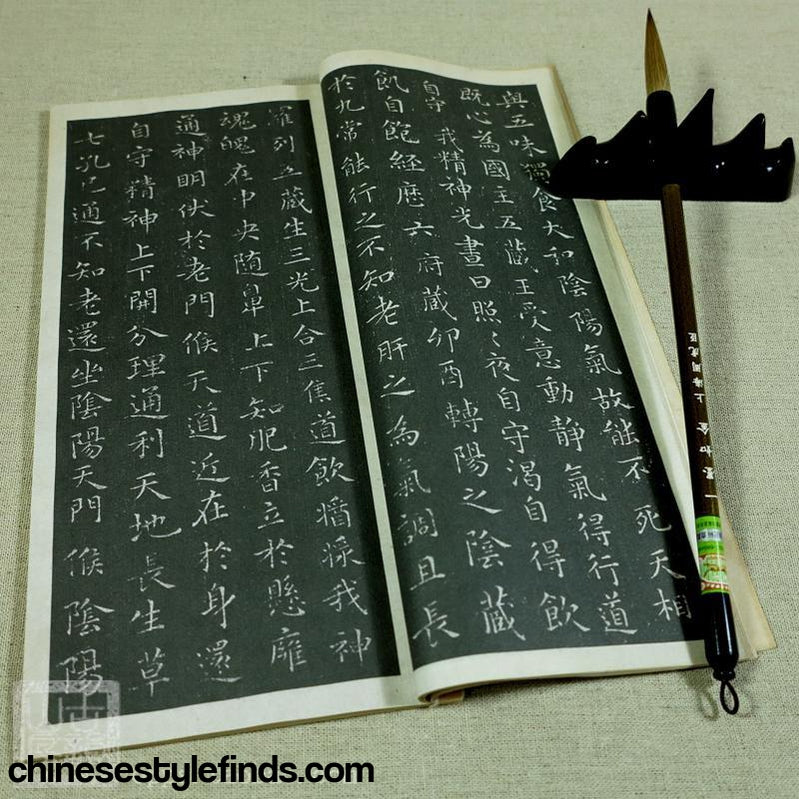 與五味獨食大和陰陽氣故能不死天相
既心為國主五藏王受意動静氣得行道
自守我精神光晝日照〻夜自守渴自得飲
飢自飽經歷六府藏卯酉轉陽之陰藏
於九常能行之不知老肝之為氣調且長
羅列五藏生三光上合三焦道飲漿我神
魂魄在中央随鼻上下知肥香立於懸廱
通神明伏於老門候天道近在於身還
自守精神上下開分理通利天地長生草
七孔已通不知老還坐陰陽天門候陰陽
上海周虎臣
一墨如金
chinesestylefinds.com